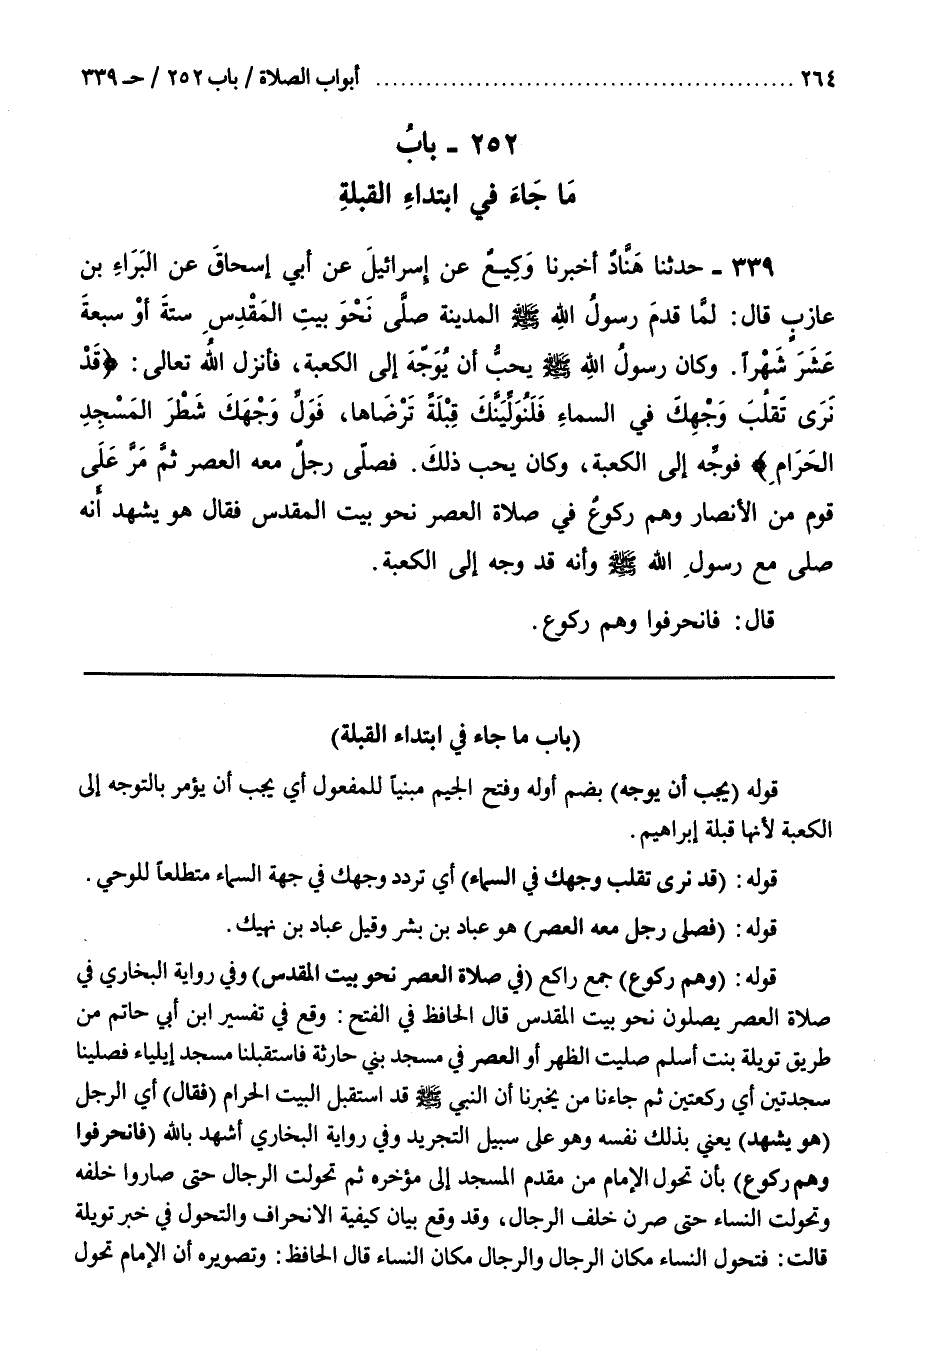 ٢٦٤ ................................................ أبواب الصلاة / باب ٢٥٢ / حـ ٣٣٩
٢٥٢ - بابُ
مَا جَاءَ في ابتداءِ القبلةِ
٣٣٩ - حدثنا هَنَّادٌ أخبرنا وَكِيعٌ عن إسرائيلَ عن أبي إسحاقَ عن البَرَاءِ بن
عازبٍ قال: لمَّا قدمَ رسولُ اللهِ ﷺ المدينة صلَّى نَحْوَ بيتِ المَقْدِسِ ستةَ أوْ سبعةَ
عَشَرَ شَهْراً. وكان رسولُ اللهِ ﷺ يحبُّ أن يُوَجَّهَ إلى الكعبة، فأنزل اللهُ تعالى: ﴿قَدْ
نَرَى تَقَلُّبَ وَجْهِكَ في السماءِ فَلَنُوَلِّيَنَّكَ قِبْلَةً تَرْضَاها، فَوَلِّ وَجْهَكَ شَطْرَ المَسْجِدِ
الحَرَامِ﴾ فوجِّه إلى الكعبة، وكان يحب ذلكَ. فصلّى رجلٌ معه العصر ثمَّ مَرَّ عَلَى
قوم من الأنصار وهم ركوعٌ في صلاة العصر نحو بيت المقدس فقال هو يشهد أنه
صلى مع رسولِ الله ﷺ وأنه قد وجه إلى الكعبة.
قال: فانحرفوا وهم ركوع.
(باب ما جاء في ابتداء القبلة)
قوله (يحب أن يوجه) بضم أوله وفتح الجيم مبنياً للمفعول أي يحب أن يؤمر بالتوجه إلى
الكعبة لأنها قبلة إبراهيم.
قوله: (قد نرى تقلب وجهك في السماء) أي تردد وجهك في جهة السماء متطلعاً للوحي.
قوله: (فصلى رجل معه العصر) هو عباد بن بشر وقيل عباد بن نهيك.
قوله: (وهم ركوع) جمع راكع (في صلاة العصر نحو بيت المقدس) وفي رواية البخاري في
صلاة العصر يصلون نحو بيت المقدس قال الحافظ في الفتح: وقع في تفسير ابن أبي حاتم من
طريق تويلة بنت أسلم صليت الظهر أو العصر في مسجد بني حارثة فاستقبلنا مسجد إيلياء فصلينا
سجدتين أي ركعتين ثم جاءنا من يخبرنا أن النبي ﷺ قد استقبل البيت الحرام (فقال) أي الرجل
(هو يشهد) يعني بذلك نفسه وهو على سبيل التجريد وفي رواية البخاري أشهد بالله (فانحرفوا
وهم ركوع) بأن تحول الإمام من مقدم المسجد إلى مؤخره ثم تحولت الرجال حتى صاروا خلفه
وتحولت النساء حتى صرن خلف الرجال، وقد وقع بيان كيفية الانحراف والتحول في خبر تويلة
قالت: فتحول النساء مكان الرجال والرجال مكان النساء قال الحافظ: وتصويره أن الإمام تحول